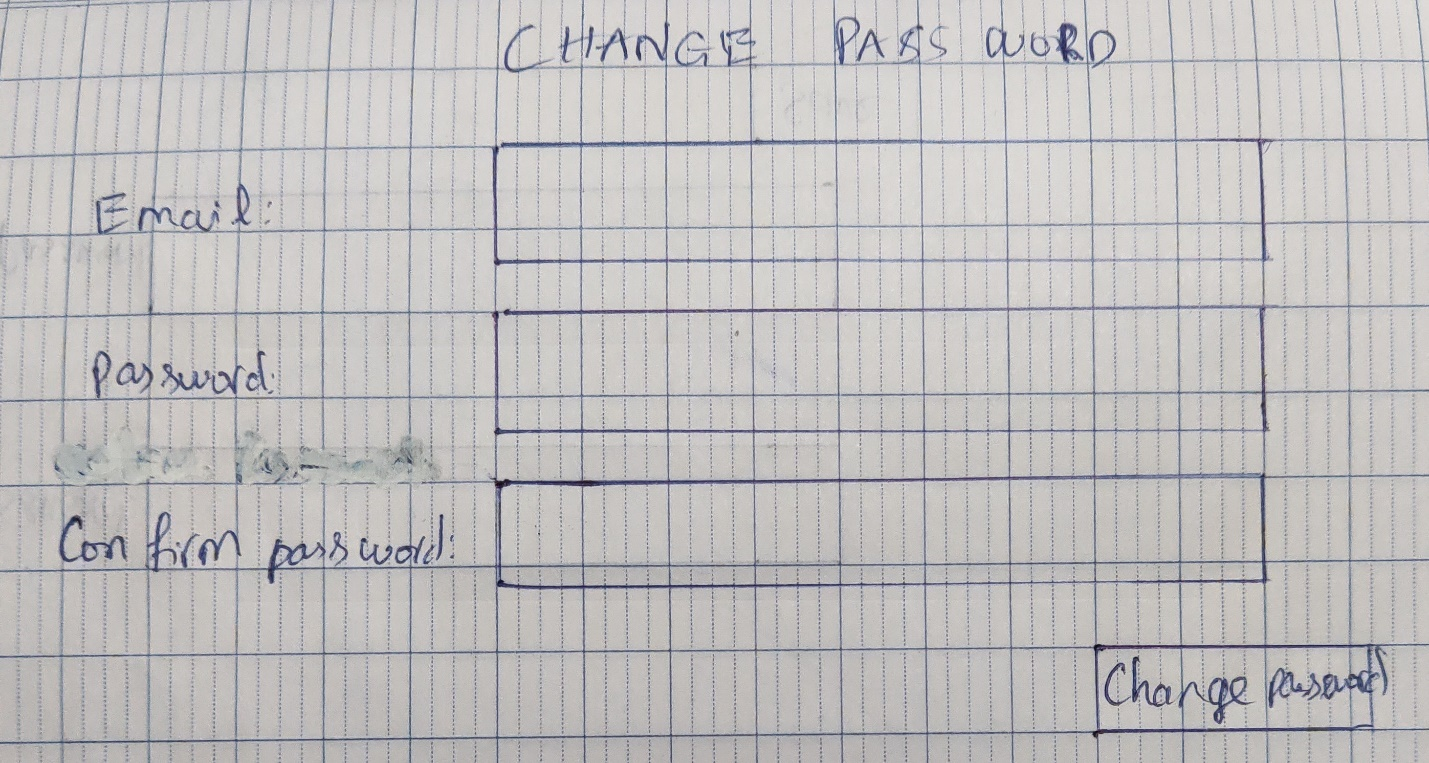 CHANGE PASSWORD
Email:
Password:
Confirm password:
Change password